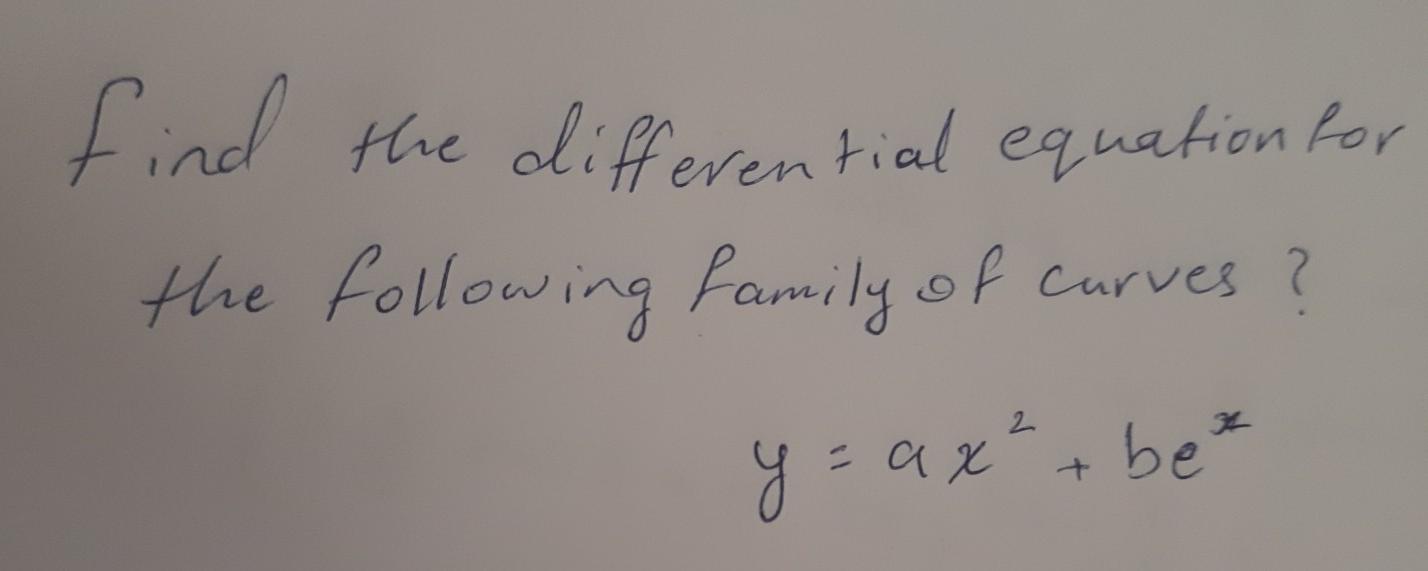 find the differential equation for
the following family of curves ?
y = ax² + beˣ